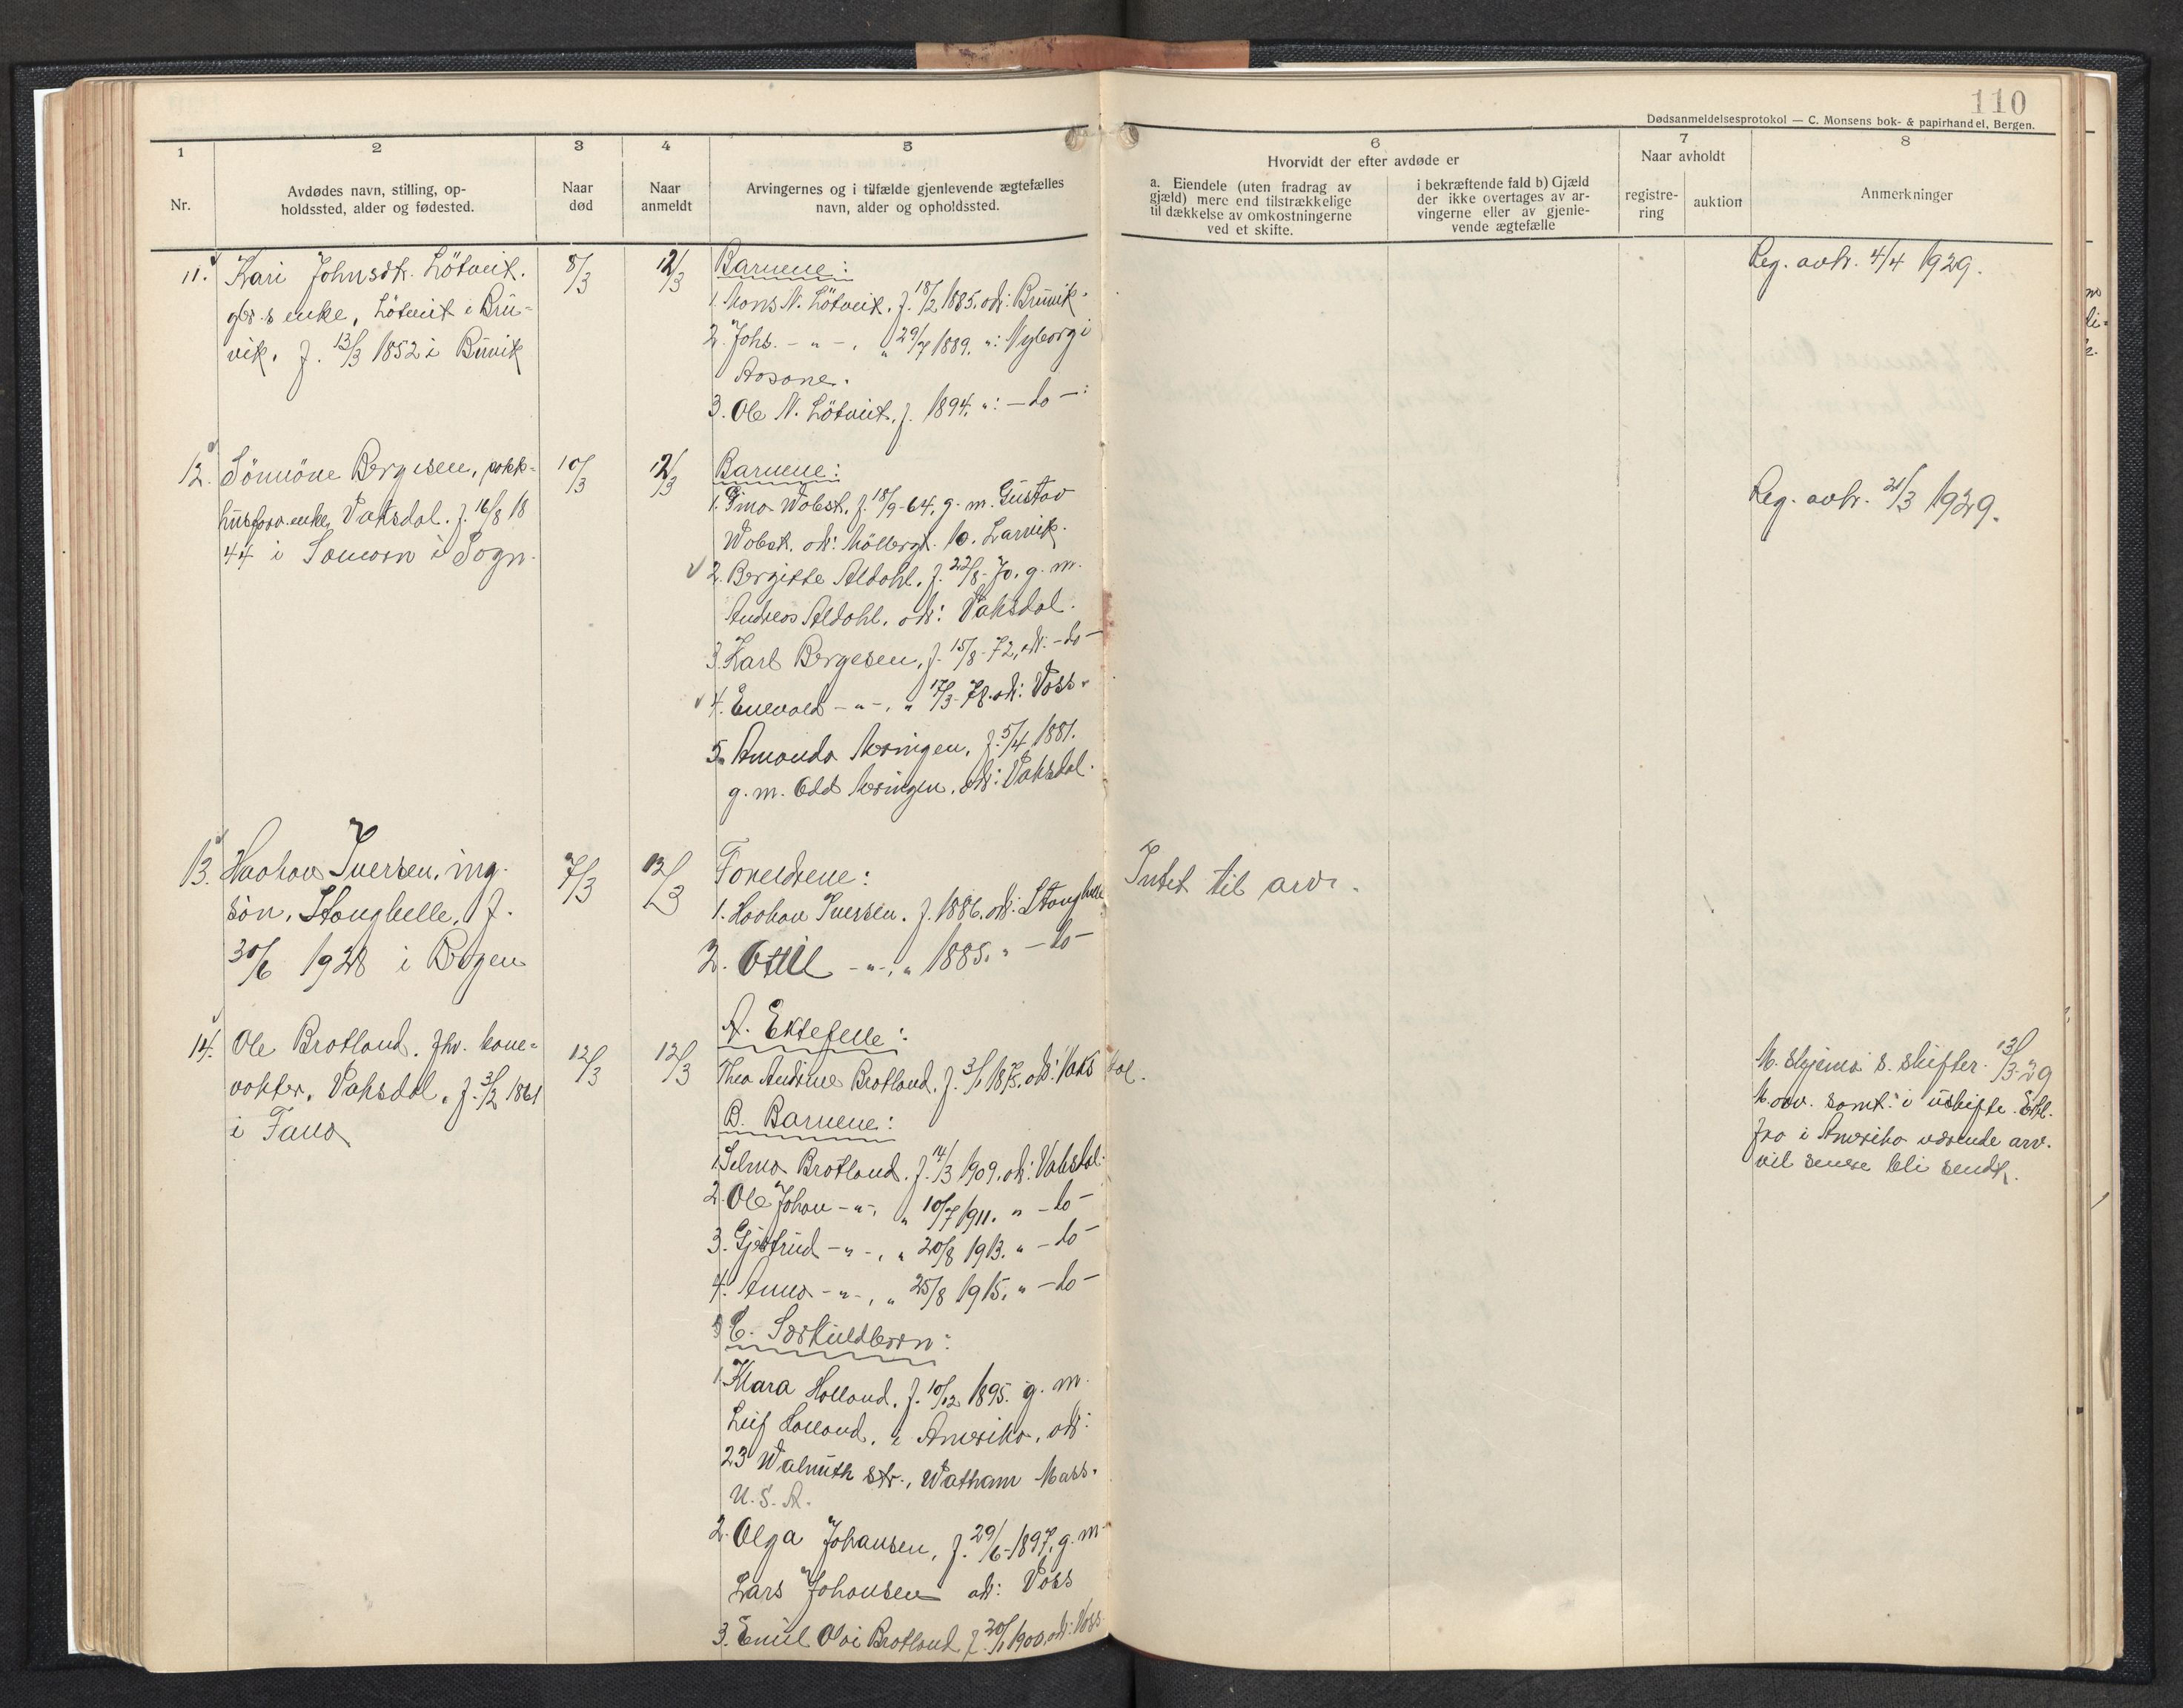 110
Dødsanmeldelsesprotokol — C. Monsens bok- & papirhandel, Bergen.
1
2
3
4
5
6
7
8
Nr.
Avdødes navn, stilling, op-
holdssted, alder og fødested.
Naar
død
Naar
anmeldt
Arvingernes og i tilfælde gjenlevende ægtefælles
navn, alder og opholdssted.
Hvorvidt der efter avdøde er
a. Eiendele (uten fradrag av
gjæld) mere end tilstrækkelige
til dækkelse av omkostningerne
ved et skifte.
i bekræftende fald b) Gjæld
der ikke overtages av ar-
vingerne eller av gjenle-
vende ægtefælle
Naar avholdt
registre-
ring
auktion
Anmerkninger
11. Kari Johnsdtr. Lötveit.
gbr.s enke, Lötveit i Bru-
vik. f. 13/3 1852 i Bruvik
8/3
12/3
Barnene:
1. Mons N. Lötveit. f. 18/2 1885. oh: Bruvik.
2. Johs. - " - , " 29/7 1889. ": Nyborg i
Aasane.
3. Ole N. Lötveit. f. 1894. ": - do - :
Reg. avh. 4/4 1929.
12. Sönnöve Bergesen, pakk-
husforv. enke, Vaksdal. f. 16/8 18
44 i i Sogn.
10/3
12/3
Barnene:
1. Wobst. f. 18/9-64. g. m. Gustav
Wobst. oh: Möllergt. 10. Larvik.
2. Bergitte Aldahl. f. 22/8-70. g. m.
Andreas Aldahl. oh: Vaksdal.
3. Karl Bergesen, f. 15/8-72, oh. - do -
4. Enevald - " - , " 17/3-78. oh: Voss.
5. Amanda Mæringen, f. 5/4 1881.
g. m. Odd Mæringen. oh: Vaksdal.
Reg. avh. 21/3 1929.
13. Haakon Iversen, ing.
sön, Stanghelle, f.
30/6 1928 i Bergen
7/3
12/3
Foreldrene:
1. Haakon Iversen. f. 1886. oh: Stanghelle
2. Ottil - " - , " 1885. " - do -
Intet til arv.
14. Ole Brotland. fhv. bane-
vokter. Vaksdal. f. 3/2 1861
i Fana
12/3
12/3
A. Ektefelle:
Thea Andrine Brotland. f. 3/1 1875. oh: Vaksdal.
B. Barnene:
1. Selma Brotland. f. 14/3 1909. oh: Vaksdal.
2. Ole Johan - " - , " 10/7 1911. " - do -
3. Gjertrud - " - , " 20/8 1913. " - do -
4. Anna - " - , " 25/8 1915. " - do -
C. Særkuldbørn:
1. Klara Holland. f. 10/12 1895. g. m.
Leif Holland. i Amerika. oh:
23 Walnuth str., Watham Mass.
U. S. A.
2. Olga Johansen, f. 29/6-1897. g. m.
Lars Johansen oh: Voss
3. Emil Olai Brotland f. 20/1 1900. oh: Voss.
M. skjema s. skifter. 13/3-29
M. arv. samt. i uskifte. Erkl.
fra i Amerika værende arv.
vil senere bli sendt.